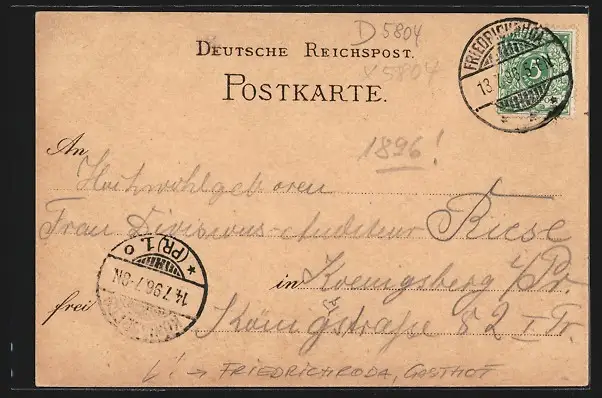 D 5804
DEUTSCHE REICHSPOST.
x 5804
POSTKARTE.
FRIEDRICHRODA
13.7.96. 5-6N.
1896!
An
Hochwohlgeboren
Frau Divisions-Auditeur Riese
in Koenigsberg i/Pr.
frei Königstraße 82 I Tr.
(PR.) 1. o
14.7.96.7-8N
! → FRIEDRICHRODA, GASTHOF